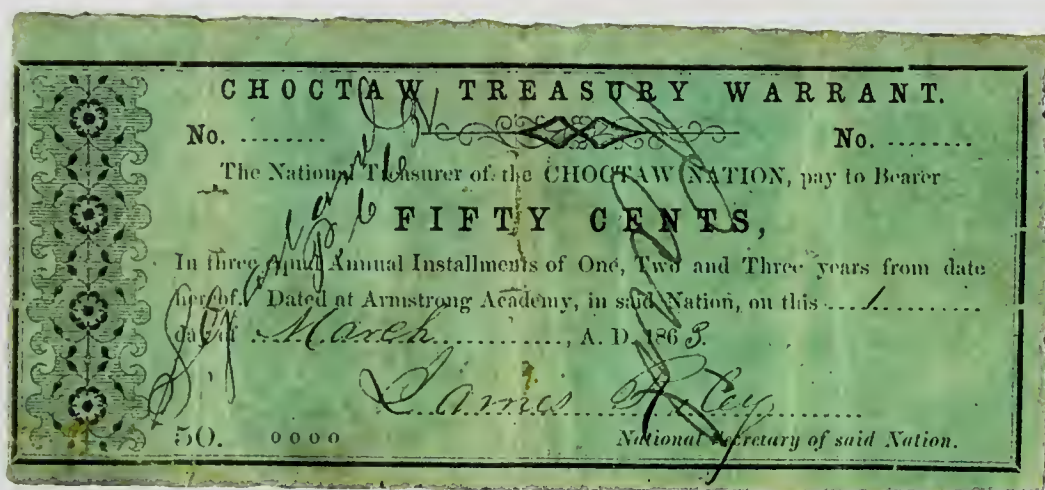 CHOCTAW TREASURY WARRANT.
No. ........ No. ........
The National Treasurer of the CHOCTAW NATION, pay to Bearer
FIFTY CENTS,
In three equal Annual Installments of One, Two and Three years from date
hereof. Dated at Armstrong Academy, in said Nation, on this ....1..........
day of ..March............, A. D. 1863.
James Riley
50. 0000 National Secretary of said Nation.